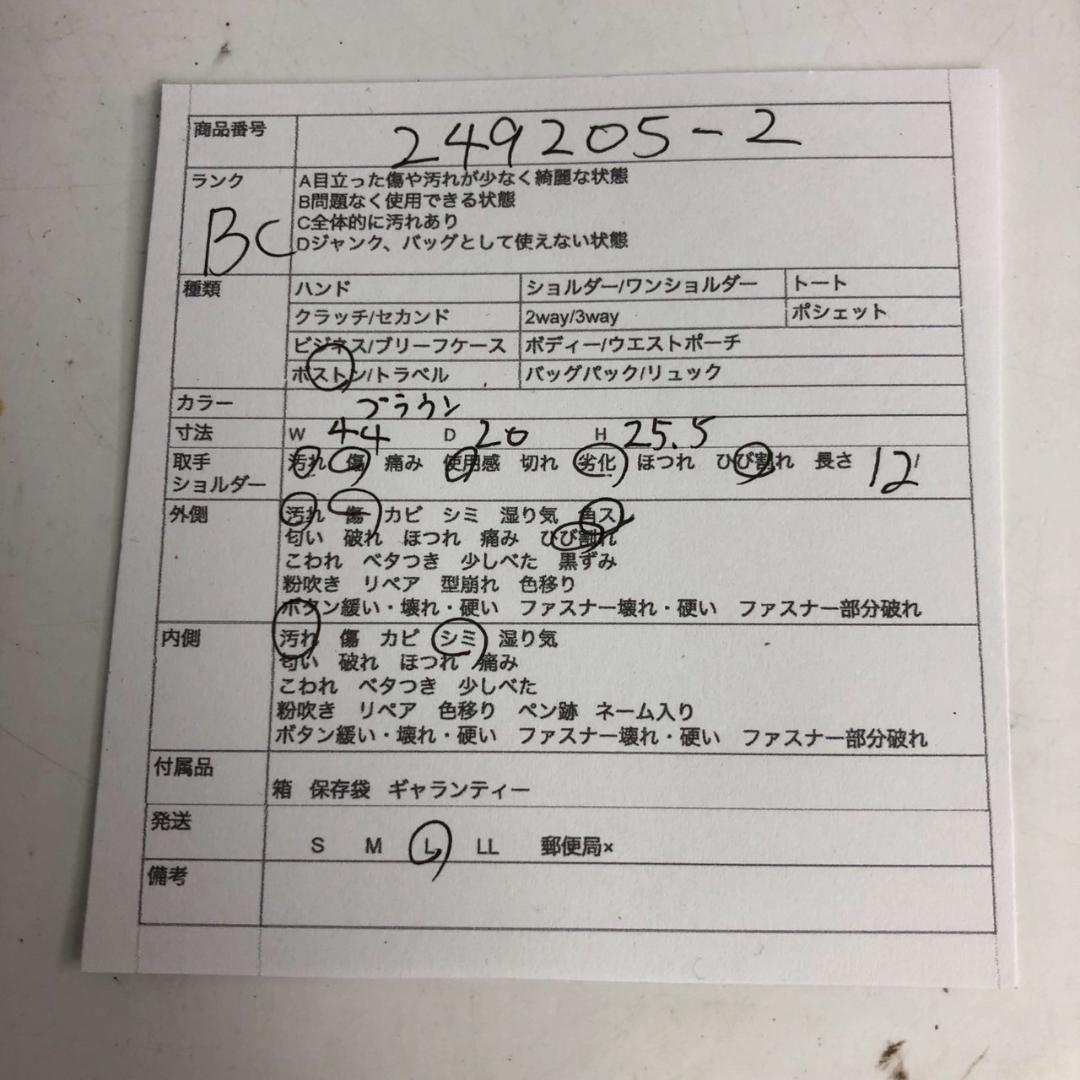 商品番号 249205-2
ランク BC
A目立った傷や汚れが少なく綺麗な状態
B問題なく使用できる状態
C全体的に汚れあり
Dジャンク、バッグとして使えない状態
種類 ハンド ショルダー/ワンショルダー トート
クラッチ/セカンド 2way/3way ポシェット
ビジネス/ブリーフケース ボディー/ウエストポーチ
ボストン/トラベル バッグパック/リュック
カラー ブラウン
寸法 W 44 D 20 H 25.5
取手 汚れ 傷 痛み 使用感 切れ 劣化 ほつれ ひび割れ 長さ 12
ショルダー
外側 汚れ 傷 カビ シミ 湿り気 角ス
匂い 破れ ほつれ 痛み ひび割れ
こわれ ベタつき 少しべた 黒ずみ
粉吹き リペア 型崩れ 色移り
ボタン緩い・壊れ・硬い ファスナー壊れ・硬い ファスナー部分破れ
内側 汚れ 傷 カビ シミ 湿り気
匂い 破れ ほつれ 痛み
こわれ ベタつき 少しべた
粉吹き リペア 色移り ペン跡 ネーム入り
ボタン緩い・壊れ・硬い ファスナー壊れ・硬い ファスナー部分破れ
付属品
箱 保存袋 ギャランティー
発送
S M L LL 郵便局×
備考